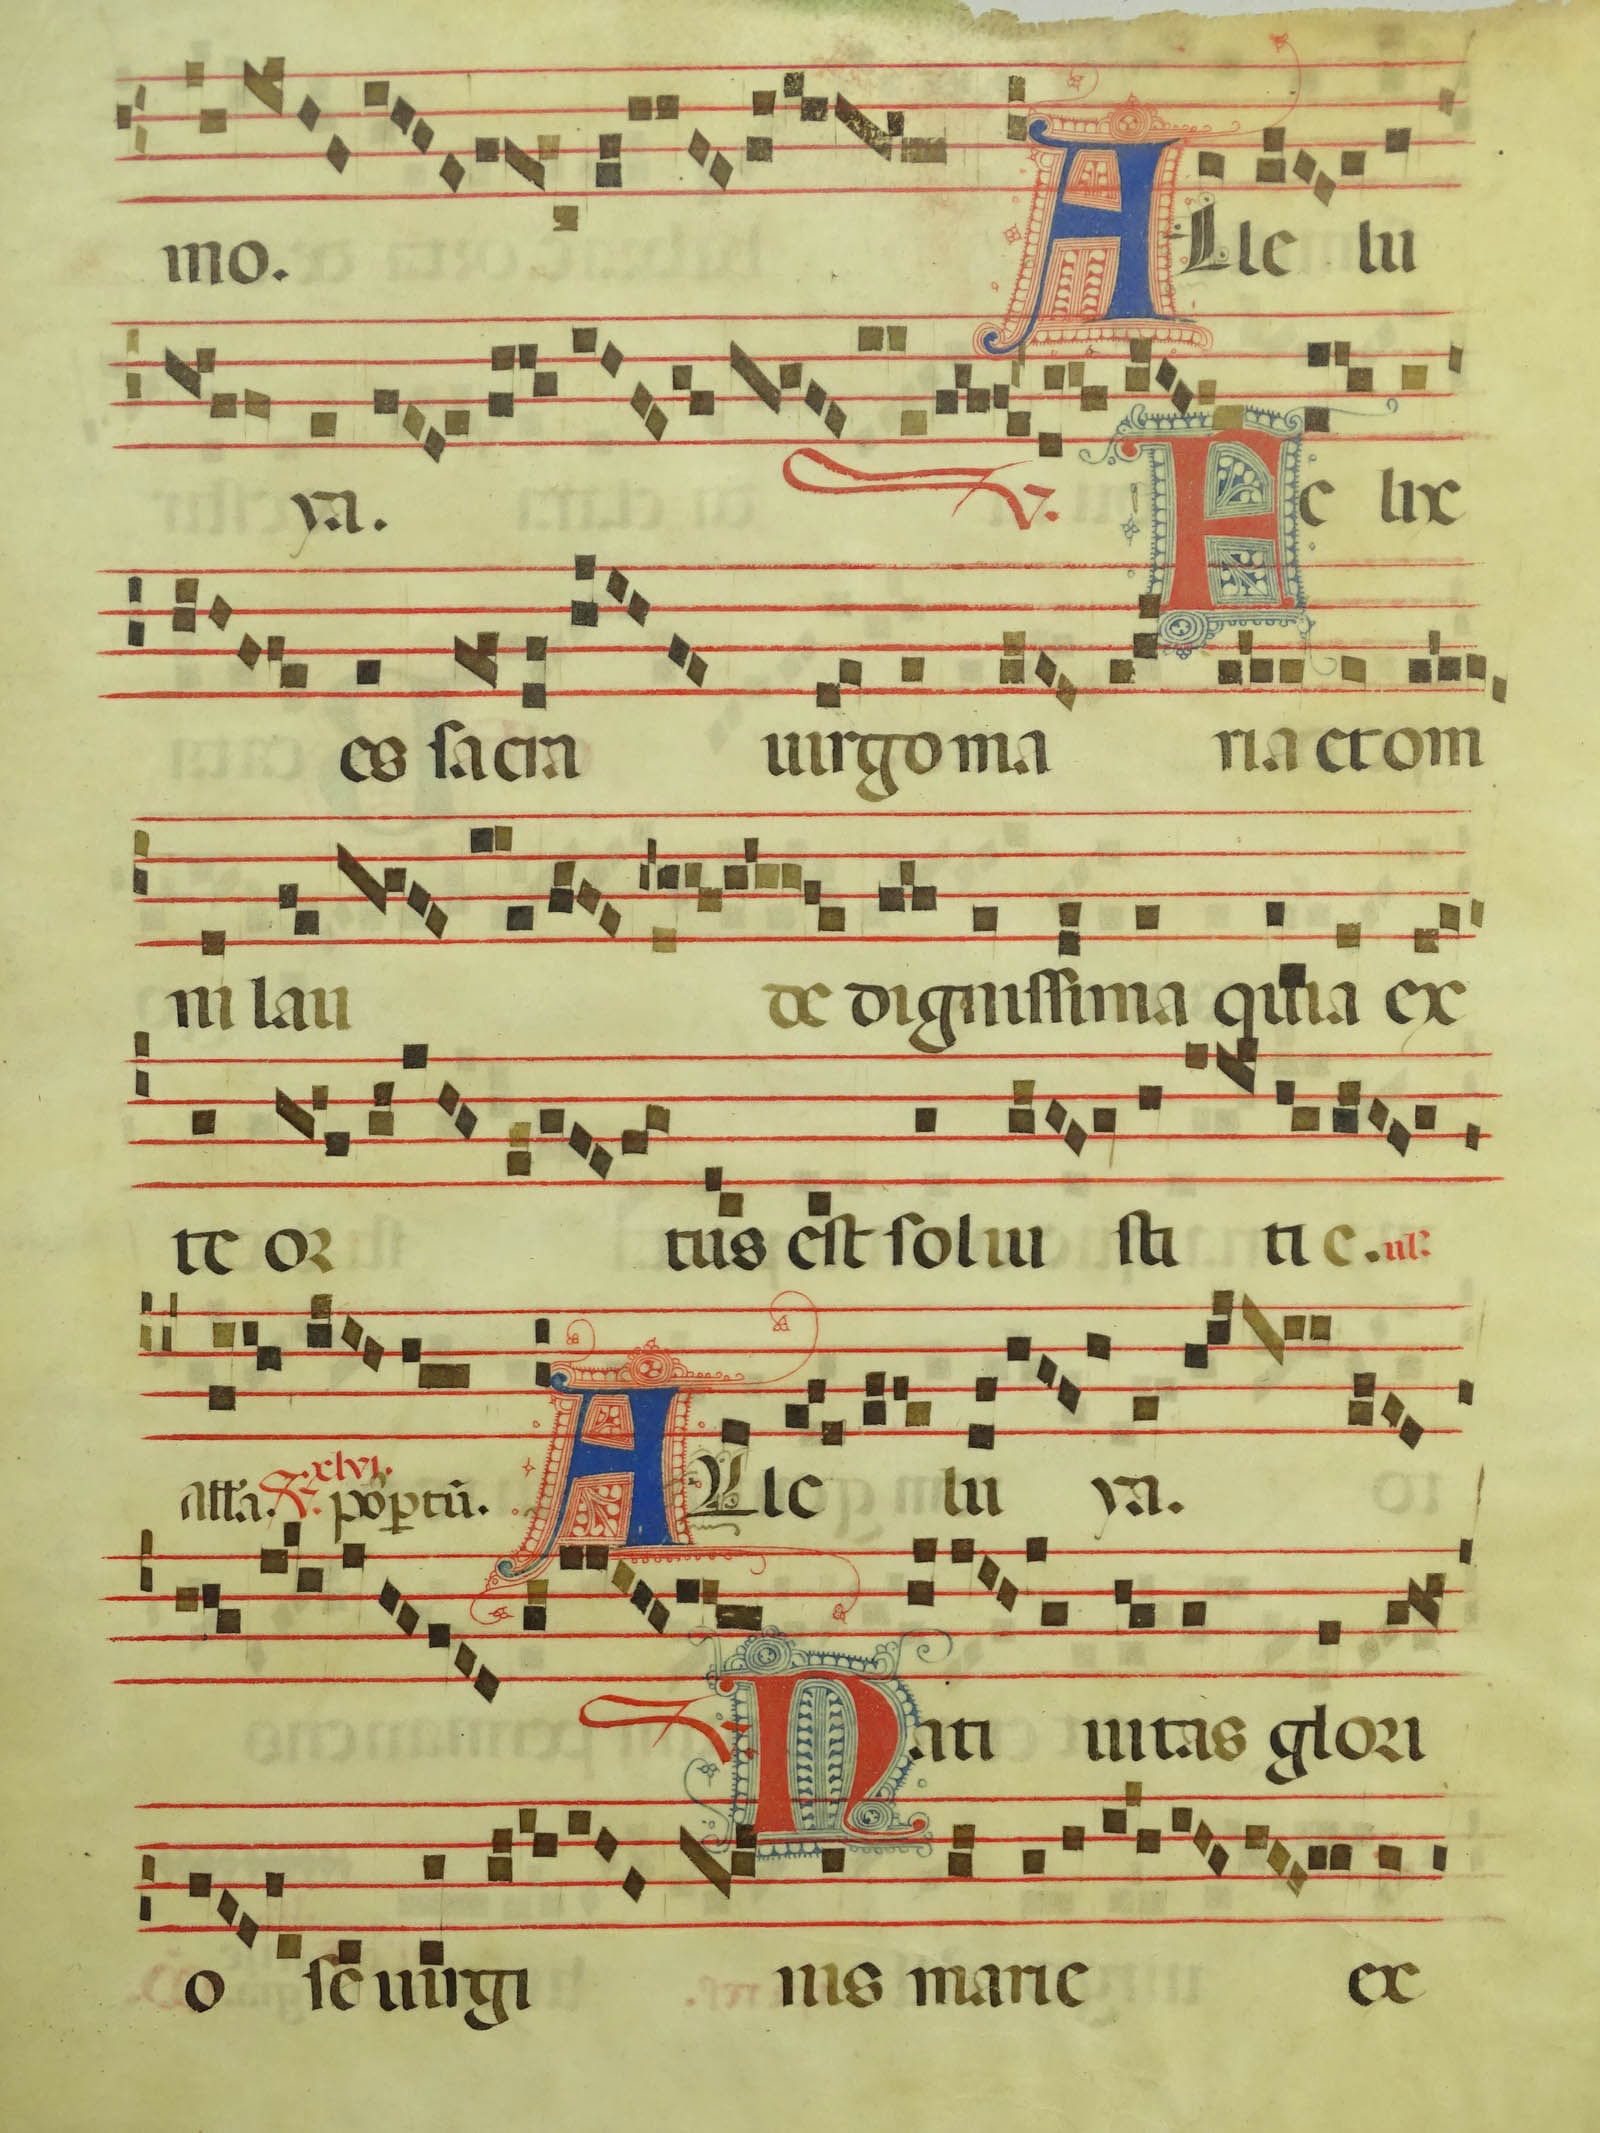 mo. Alle lu
ya. V. Fe lix
es sacra uirgo ma ria et om
ni lau de dignissima quia ex
te or tus est sol iu sti ti e.
Alla. xlvi. Alle lu ya.
V. Nati uitas glori
o se uirgi nis marie ex